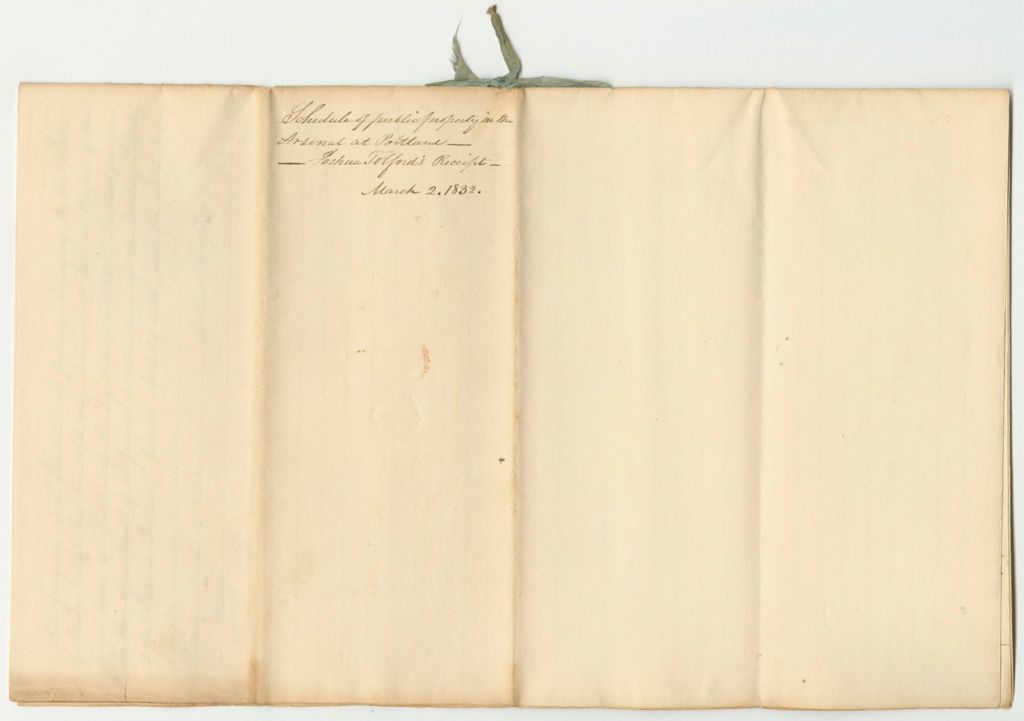 Schedule of public property in the
Arsenal at Portland —
— Joshua Tolford's Receipt —
March 2. 1832.